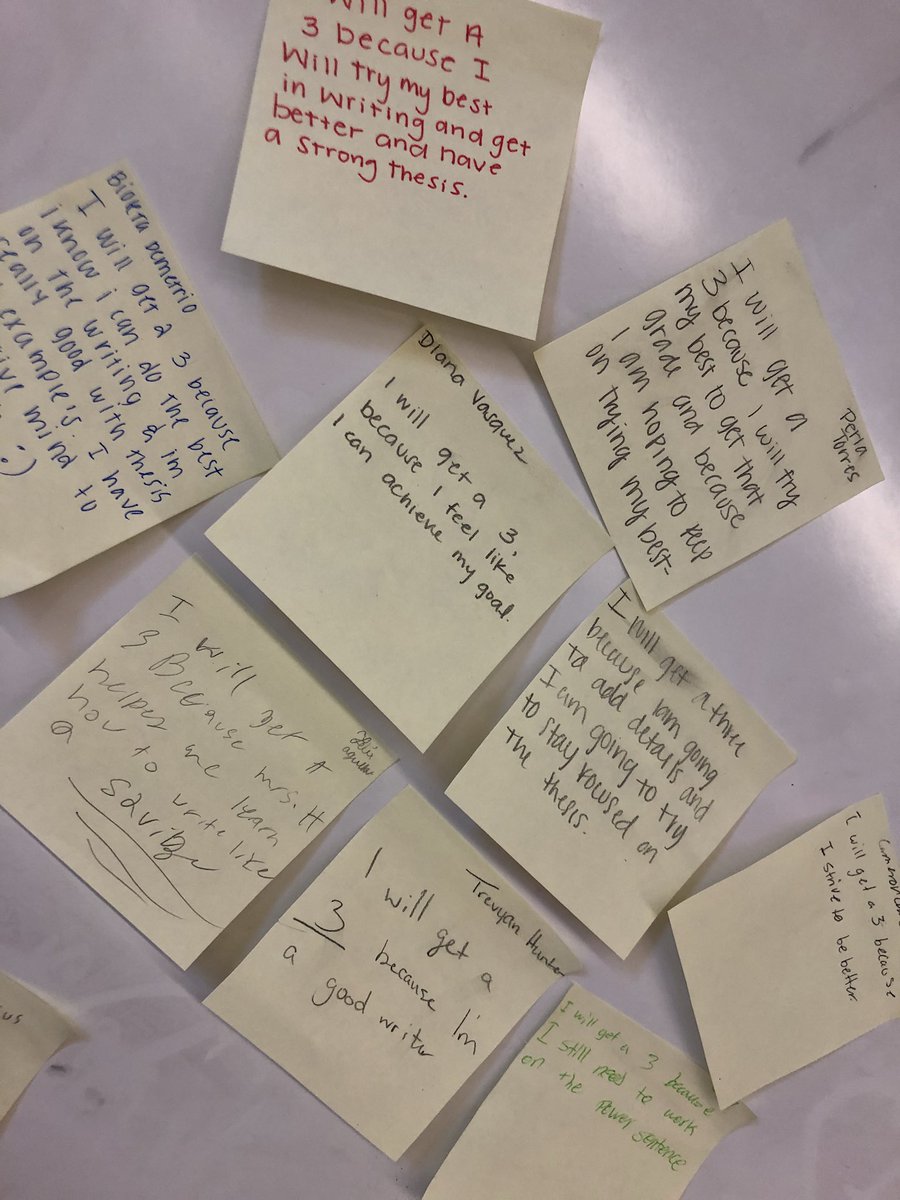 Will get A
3 because I
Will try my best
in writing and get
better and have
a strong thesis.
demetrio
I will get 2 3 because
i know i can do the best
on the writing & im
really good with thesis
example's. I have
mind to
:)
Diana Vasquez
I will get a 3,
because I feel like
I can achieve my goal.
Perla
Torres
I will get a
3 because I will try
my best to get that
grade and because
I am hoping to keep
on trying my best-
I will get a three
because iam going
to add details and
I am going to try
to stay focused on
the thesis.
I will get A
3 Because mrs. H
helped me learn
how to write like
a
savage
Trevyan Hunter
I will get a
3 because I'm
a good writer
Cameron
I will get a 3 because
I strive to be better
I will get a 3 because
I still need to work
on the Power sentence
us